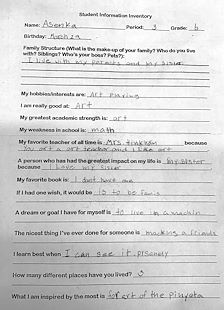 Student Information Inventory
Name: Asenka Period: 3 Grade: 6
Birthday: March 29
Family Structure (What is the make up of your family? Who do you live
with? Siblings? Who's your boss? Pets?):
I live with my parents and my sister
My hobbies/interests are: Art
I am really good at: Art
My greatest academic strength is: art
My weakness in school is: math
My favorite teacher of all time is Mrs. tinkham because
art a art teacher and I like art
A person who has had the greatest impact on my life is my sister
because I love my sister
My favorite book is: I dont have one
If I had one wish, it would be is to be
A dream or goal I have for myself is to live in a
The nicest thing I've ever done for someone is making a friends
I learn best when I can see it
How many different places have you lived?
What I am inspired by the most is for art of the